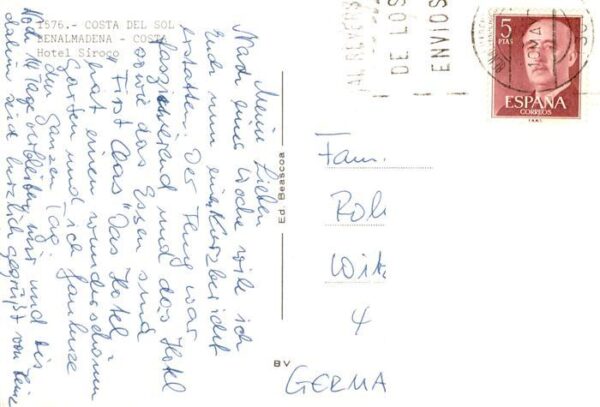 1576.- COSTA DEL SOL
BENALMADENA - COSTA
Hotel Siroco
Meine Lieben
Nach eine Woche will ich
Euch nun ein Kurzbericht
erstatten. Der Flug war
faszinierend und das Hotel
sowie das Essen sind
"First Class" Das Hotel
hat einen wunderschönen
Garten und ich faulenze
den ganzen Tag
Noch 14 Tage verbleiben mir und bis
dahin seid herzlich gegrüßt von
Ed. Beascoa
BV
AL REVERS
DE LOS
ENVIOS
5
PTAS
ESPAÑA
CORREOS
Fam.
Rol
Witz
4
GERMA